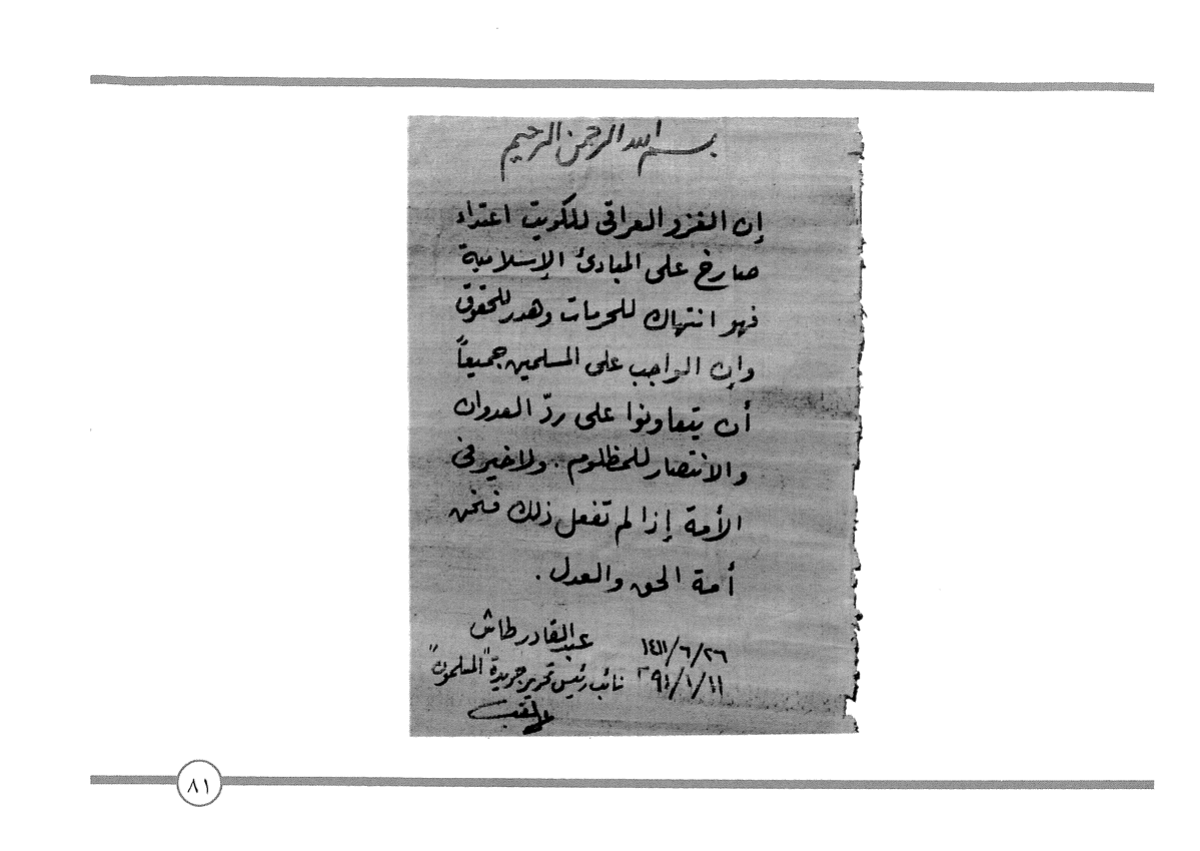 بسم الله الرحمن الرحيم
إن الغزو العراقي للكويت اعتداء
صارخ على المبادئ الإسلامية
فهو انتهاك للحرمات وهدر للحقوق
وإن الواجب على المسلمين جميعاً
أن يتعاونوا على ردّ العدوان
والانتصار للمظلوم. ولا خير في
الأمة إذا لم تفعل ذلك فنحن
أمة الحق والعدل.
عبد القادر طاش
١٤١١/٦/٢٦
نائب رئيس تحرير جريدة "المسلمون"
٩١/١/١١م
٨١